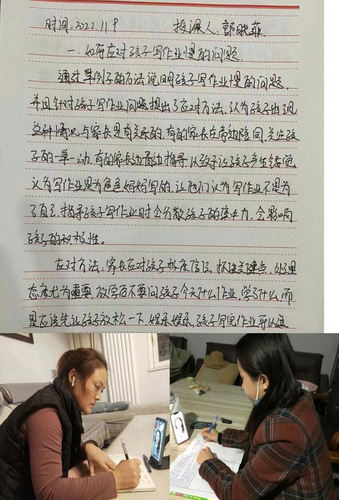 时间:2022.11.9 授课人:郭晓菲
一.如何应对孩子写作业慢的问题.
通过举例子的方法说明孩子写作业慢的问题.
并且针对孩子写作业问题提出了应对方法.认为孩子出现
这种情况与家长是有关系的.有的家长在旁边陪同.关注孩
子的一举一动.有的家长边看边指导.从而让孩子产生错觉
认为写作业是为爸爸妈妈写的.让他们认为写作业不是为
了自己.指导孩子写作业时会分散孩子的注意力.会影响
孩子的积极性.
应对方法:家长应对孩子 信任.抓住关键点.处理
态度尤为重要.放学后不要问孩子今天什么作业.学了什么.而
是应该先让孩子放松一下.娱乐娱乐.孩子写完作业可以